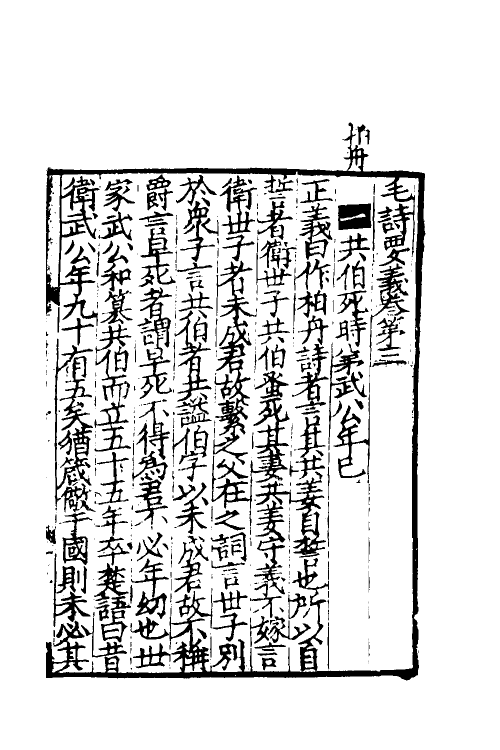 柏舟
毛詩要義卷第三
一 共伯死時弟武公年已
正義曰作柏舟詩者言其共姜自誓也所以自
誓者衛世子共伯蚤死其妻共姜守義不嫁言
衛世子者未成君故繫之父在之詞言世子別
於衆子言共伯者共謚伯字以未成君故不稱
爵言早死者謂早死不得為君不必年幼也世
家武公和篡共伯而立五十五年卒楚語曰昔
衛武公年九十有五矣猶箴儆于國則未必其